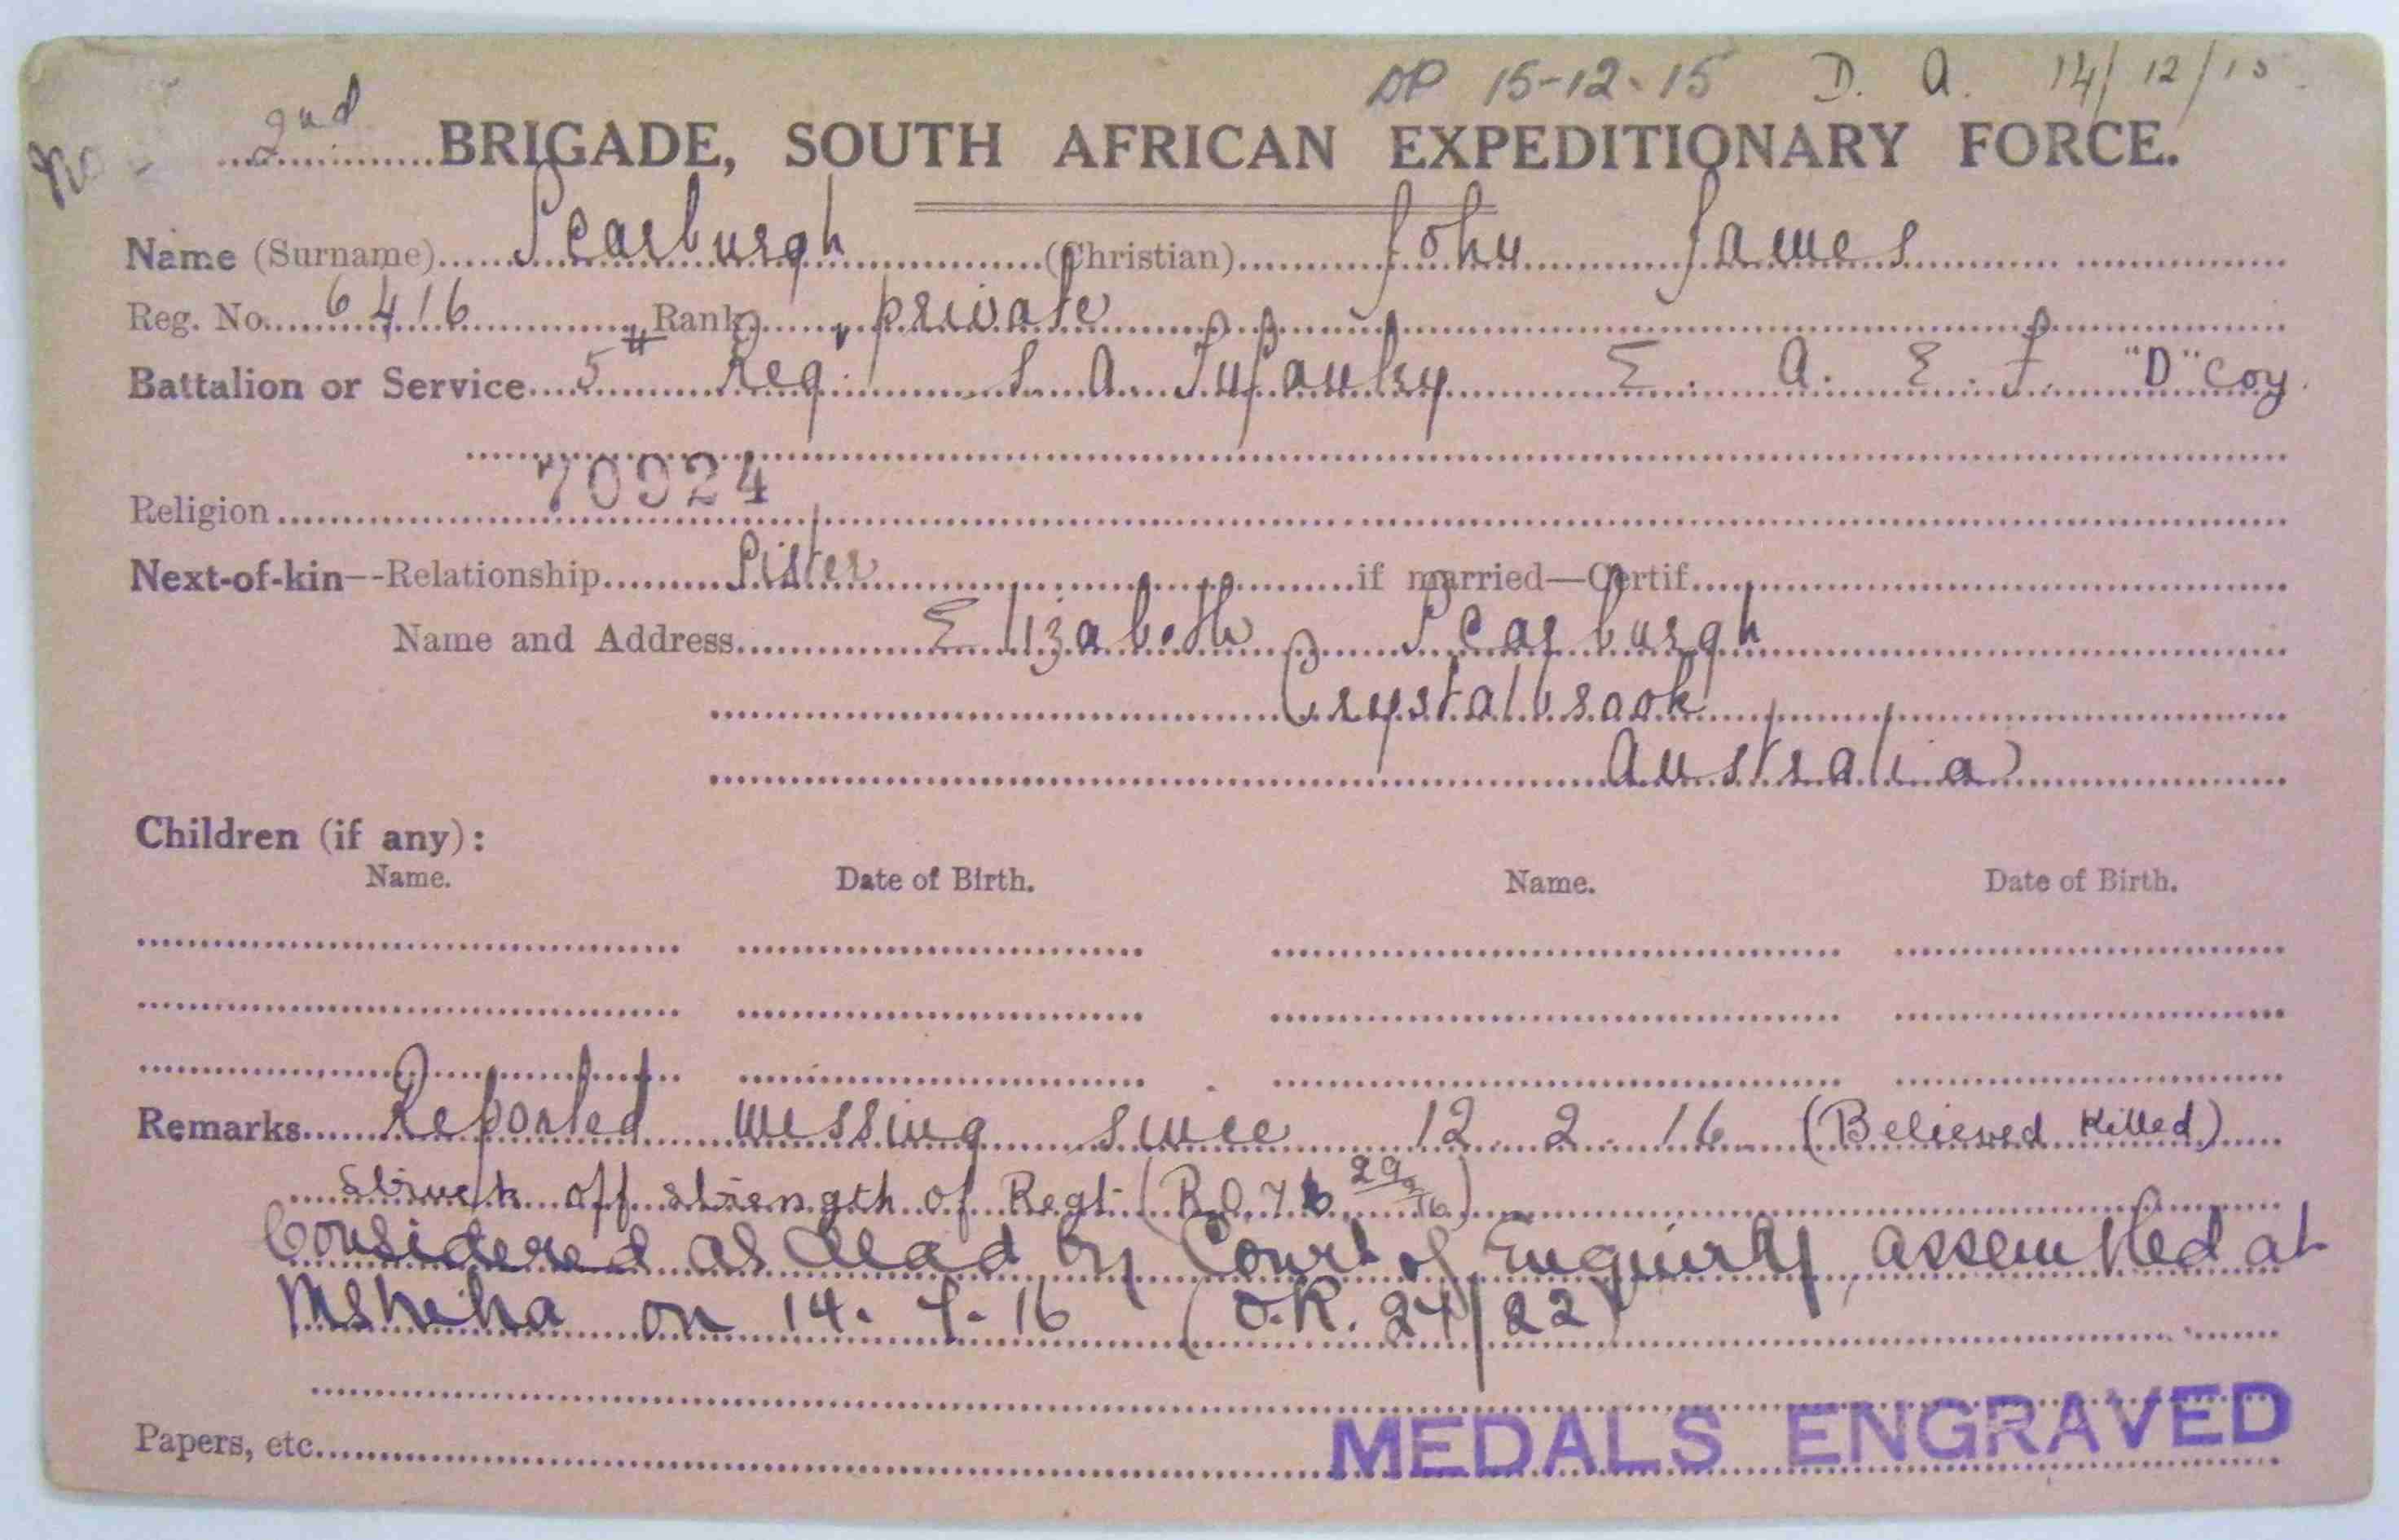 DP 15-12-15 D. A. 14/12/15
No
2nd BRIGADE, SOUTH AFRICAN EXPEDITIONARY FORCE.
Name (Surname) Scarburgh (Christian) John James
Reg. No. 6416 Rank private
Battalion or Service 5th Reg. S. A. Infantry E. A. E. F. "D" Coy.
70924
Religion
Next-of-kin--Relationship Sister if married—Certif.
Name and Address Elizabeth Scarburgh
Crystalbrook
Australia
Children (if any):
Name. Date of Birth. Name. Date of Birth.
Remarks Reported missing since 12.2.16 (Believed Killed)
struck off strength of Regt (R.O. 29
Considered as dead by Court of Enquiry assembled at
Msheha on 14. 16 (O.R. 24/22)
Papers, etc. MEDALS ENGRAVED